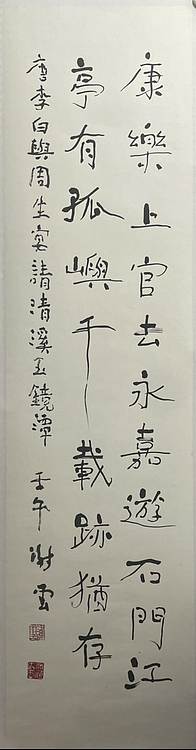 康樂上官去永嘉遊石門江
亭有孤嶼千載跡猶存
唐李白與周生宴請清溪玉鏡潭
壬午謝雲